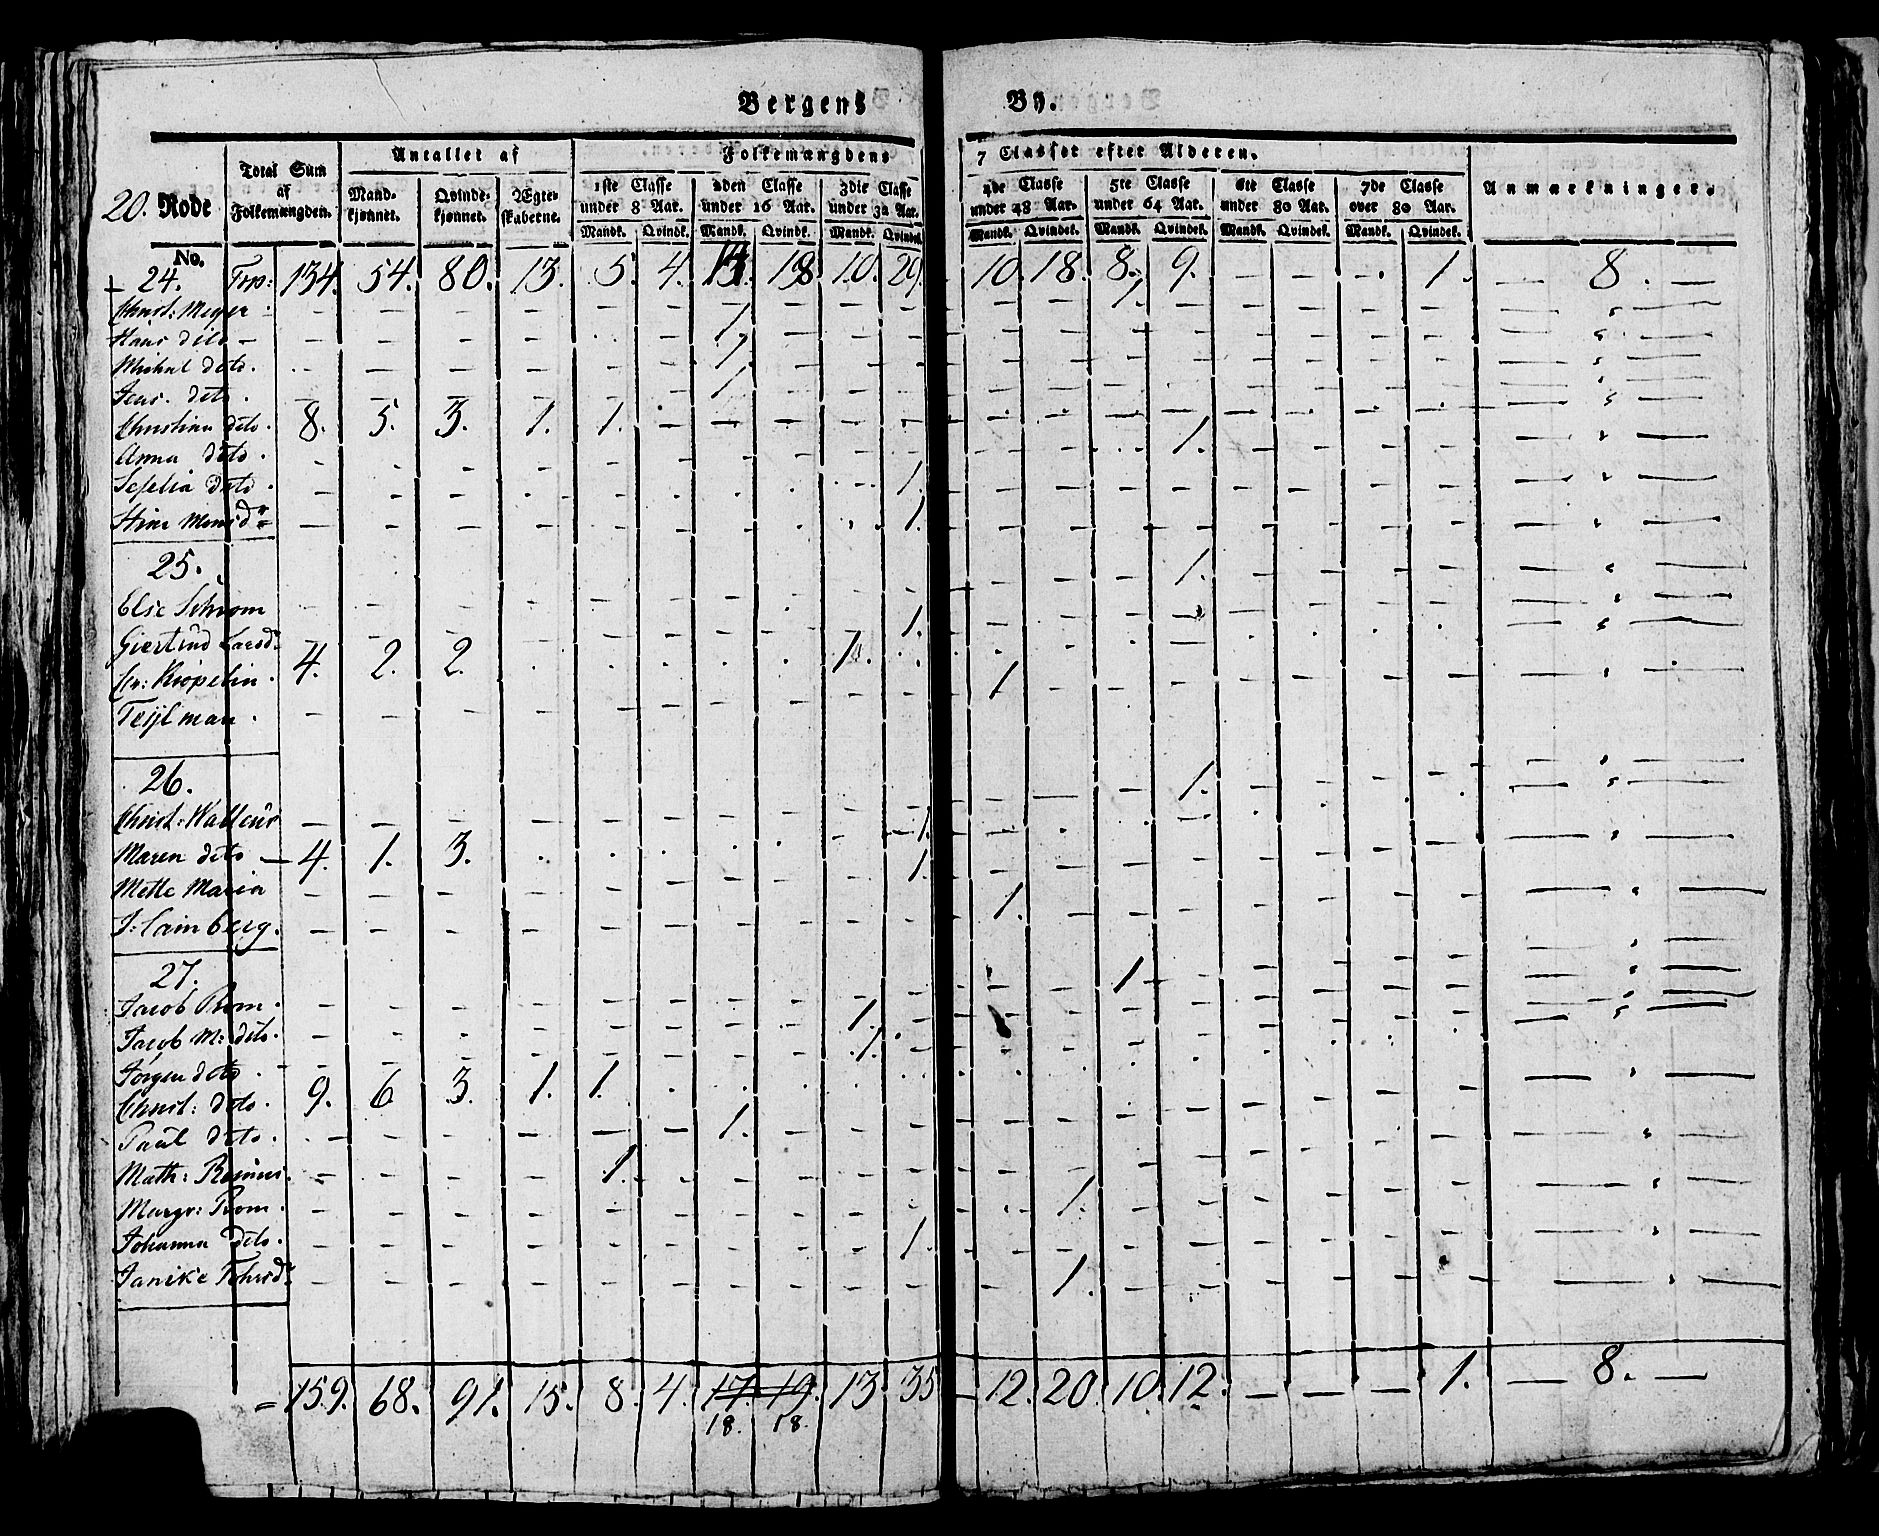 Bergens By.
Antallet af
Folkemængdens 7 Classer efter Alderen.
20. Rode
Total Sum af Folkemængden.
Mand-kjønnet.
Qvinde-kjønnet.
Ægte-skaberne.
1ste Classe under 8 Aar.
2den Classe under 16 Aar.
3die Classe under 32 Aar.
4de Classe under 48 Aar.
5te Classe under 64 Aar.
6te Classe under 80 Aar.
7de Classe over 80 Aar.
Anmærkninger.
No.
Mandk. Qvindk. Mandk. Qvindk. Mandk. Qvindek. Mandk. Qvindek. Mandk. Qvindek. Mandk. Qvindek. Mandk. Qvindek.
24. Trp: 134. 54. 80. 13. 5. 4. 13. 18 10. 29. 10. 18. 8. 9. — — — 1. — 8. —
Christ: Meyer 1.
Hans dito 1
Michal dito. 1
Jens dito. 1
Christian dito. 8. 5. 3. 1. 1.
Anna dito. 1.
dito. 1.
Stine Monsd 1.
25. 1.
Else Schrom
Giertrud Larsd 1.
Cr: Kröpelin. 4. 2. 2. 1.
Teijlman. 1
26. 1.
Christ: Walleur 1
Maren dito 4. 1. 3. 1.
Mette Maria
J: Cainberg. 1.
27. 1
Jacob Rom. 1.
Jacob M: dito. 1.
Jørgen dito.
Christ: dito. 9. 6 3. 1. 1.
Paul dito. 1.
Math: 1.
Margr: Rom. 1.
Johanna dito. 1.
Janike 1.
= 159. 68. 91. 15. 8. 4. 17. 19. 13. 35 — 12. 20. 10. 12. — — — 1. — 8. —
18. 18.